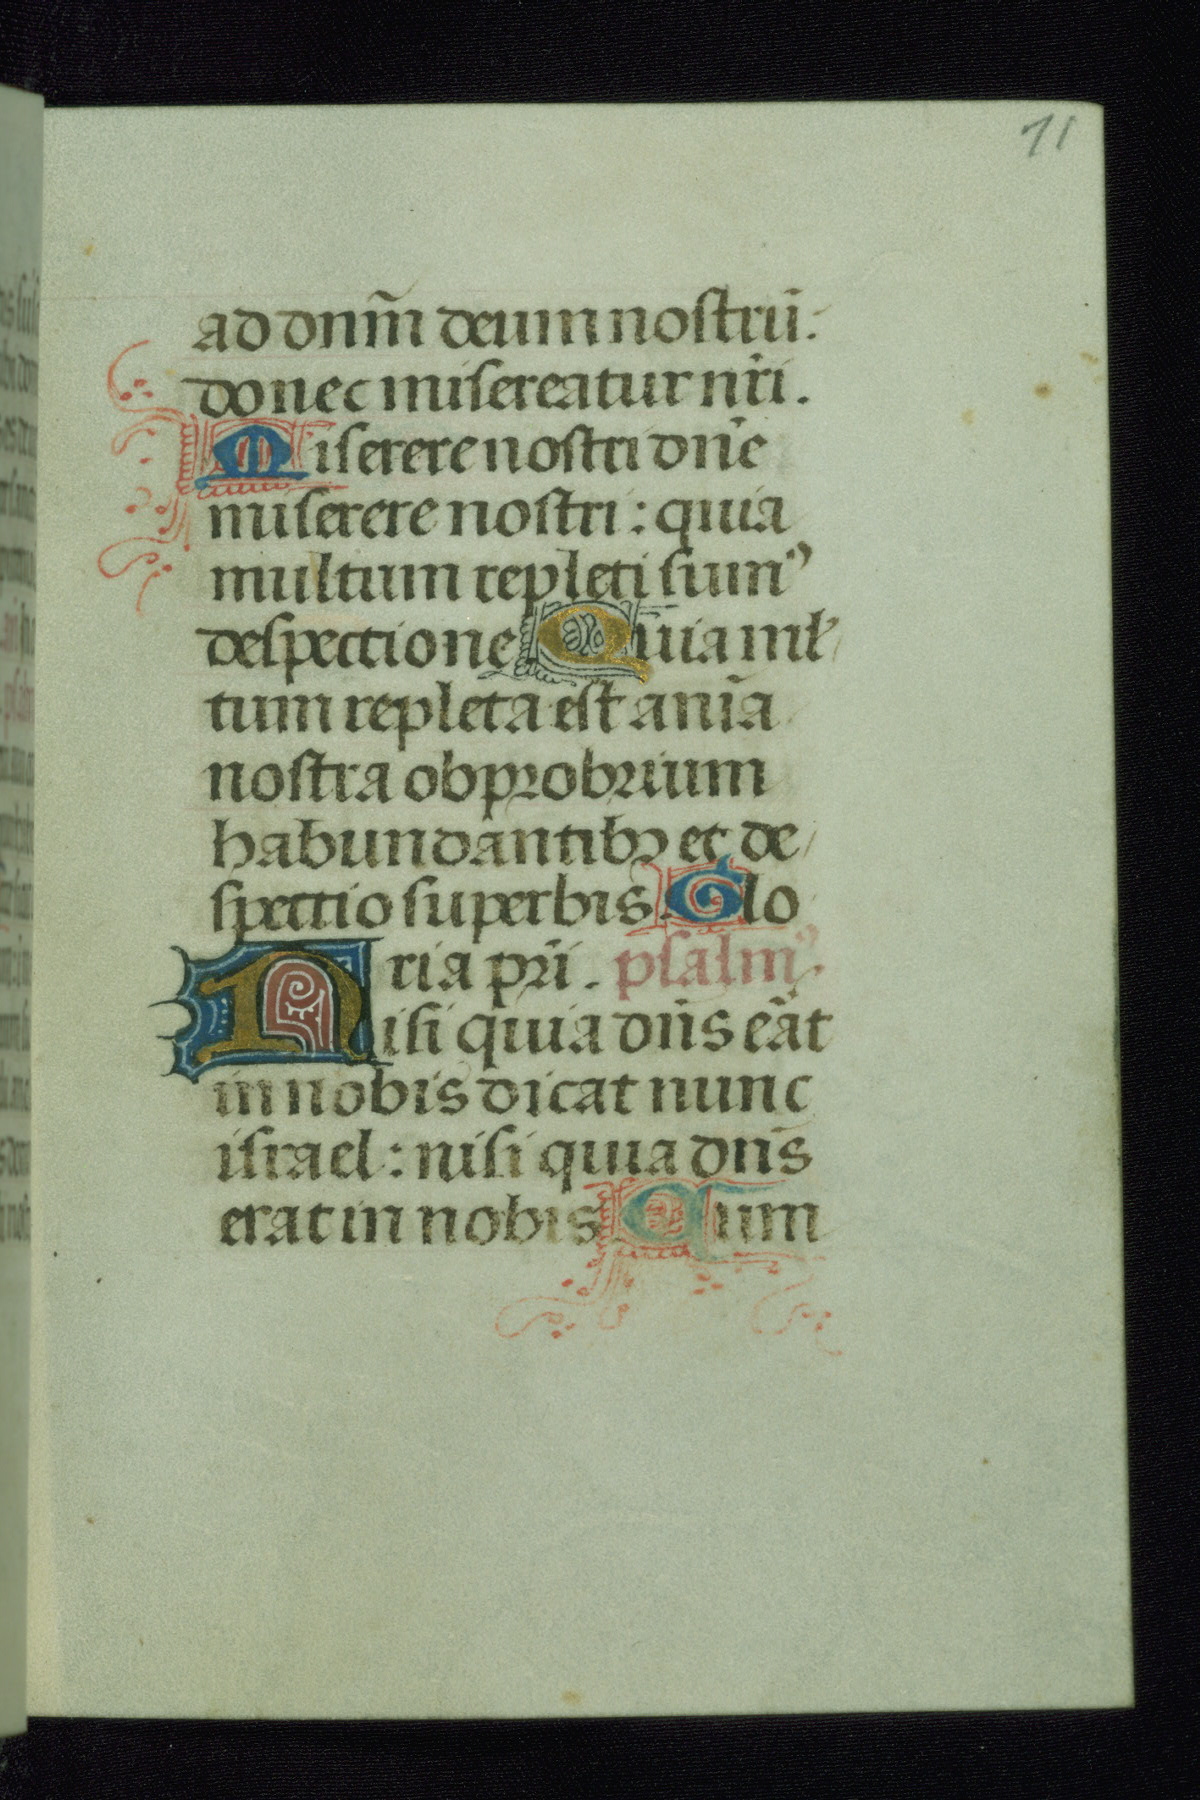 71
ad dnm̄ deum nostrū.
donec misereatur nr̄i.
Miserere nostri dn̄e
miserere nostri: quia
multum repleti sumꝰ
despectione Quia ml̄
tum repleta est anīa
nostra obprobrium
habundantibꝫ et de
spectio superbis. Glo
ria pr̄i. psalmꝰ.
Nisi quia dn̄s erāt
in nobis dicat nunc
israel: nisi quia dn̄s
erat in nobis Cum